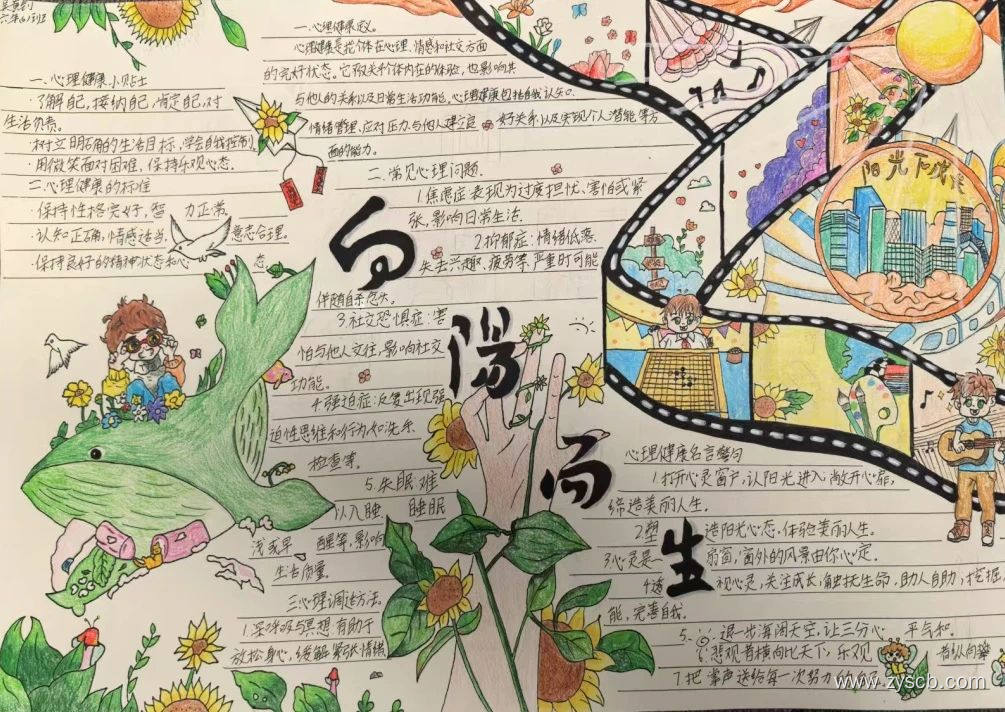 六年(6)班
一.心理健康小贴士
·了解自己,接纳自己,肯定自己,对
生活负责。
·树立明确的生活目标,学会自我控制
·用微笑面对困难,保持乐观心态.
二.心理健康的标准
·保持性格完好,智 力正常.
·认知正确,情感适当. 意志合理.
·保持良好的精神状态和心 态
一.心理健康定义.
心理健康是指个体在心理、情感和社交方面
的完好状态。它不仅关系个体内在的体验,也影响其
与他人的关系以及日常生活功能,心理健康包括自我认知、
情绪管理、应对压力、与他人建立良 好关系,以及实现个人潜能等方
面的能力.
二.常见心理问题.
1.焦虑症:表现为过度担忧、害怕或紧
张,影响日常生活.
2.抑郁症:情绪低落.
失去兴趣、疲劳等,严重时可能
伴随自杀念头。
3.社交恐惧症:害
怕与他人交往,影响社交
功能。
4.强迫症:反复出现强
迫性思维和行为,如洗手.
检查等.
5.失眠:难
以入睡. 睡眠
浅或早 醒等,影响
生活质量.
三.心理调适方法.
1.深呼吸与冥想:有助于
放松身心,缓解紧张情绪
向
陽
而
生
阳光下成长
心理健康名言警句
1.打开心灵窗户,让阳光进入,敞开心扉,
缔造美丽人生.
2.塑 造阳光心态,体验美丽人生.
3.心灵是一 扇窗,窗外的风景由你心定.
4.透 视心灵,关注成长,触抚生命,助人自助,挖掘
能,完善自我.
5. 退一步海阔天空,让三分心 平气和.
悲观者横向比天下,乐观 者纵向攀
7.把掌声送给每一次努力
www.zyscb.com